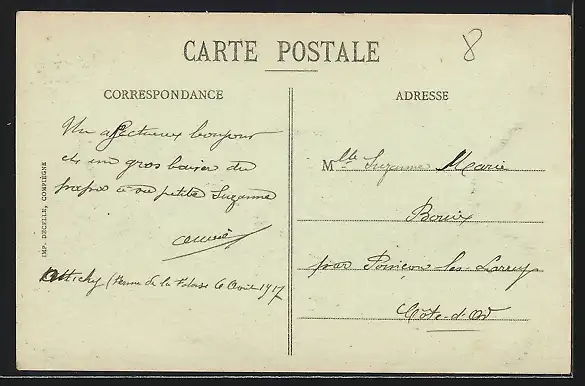 CARTE POSTALE
8
CORRESPONDANCE
Un affectueux bonjour
et un gros baiser du
à sa petite Suzanne
Attichy ( de la 6 Avril 1917
IMP. DECELLE, COMPIÈGNE
ADRESSE
Mlle Suzanne Marie
Bouix
par Poinçon les Larrey
Côte-d'Or